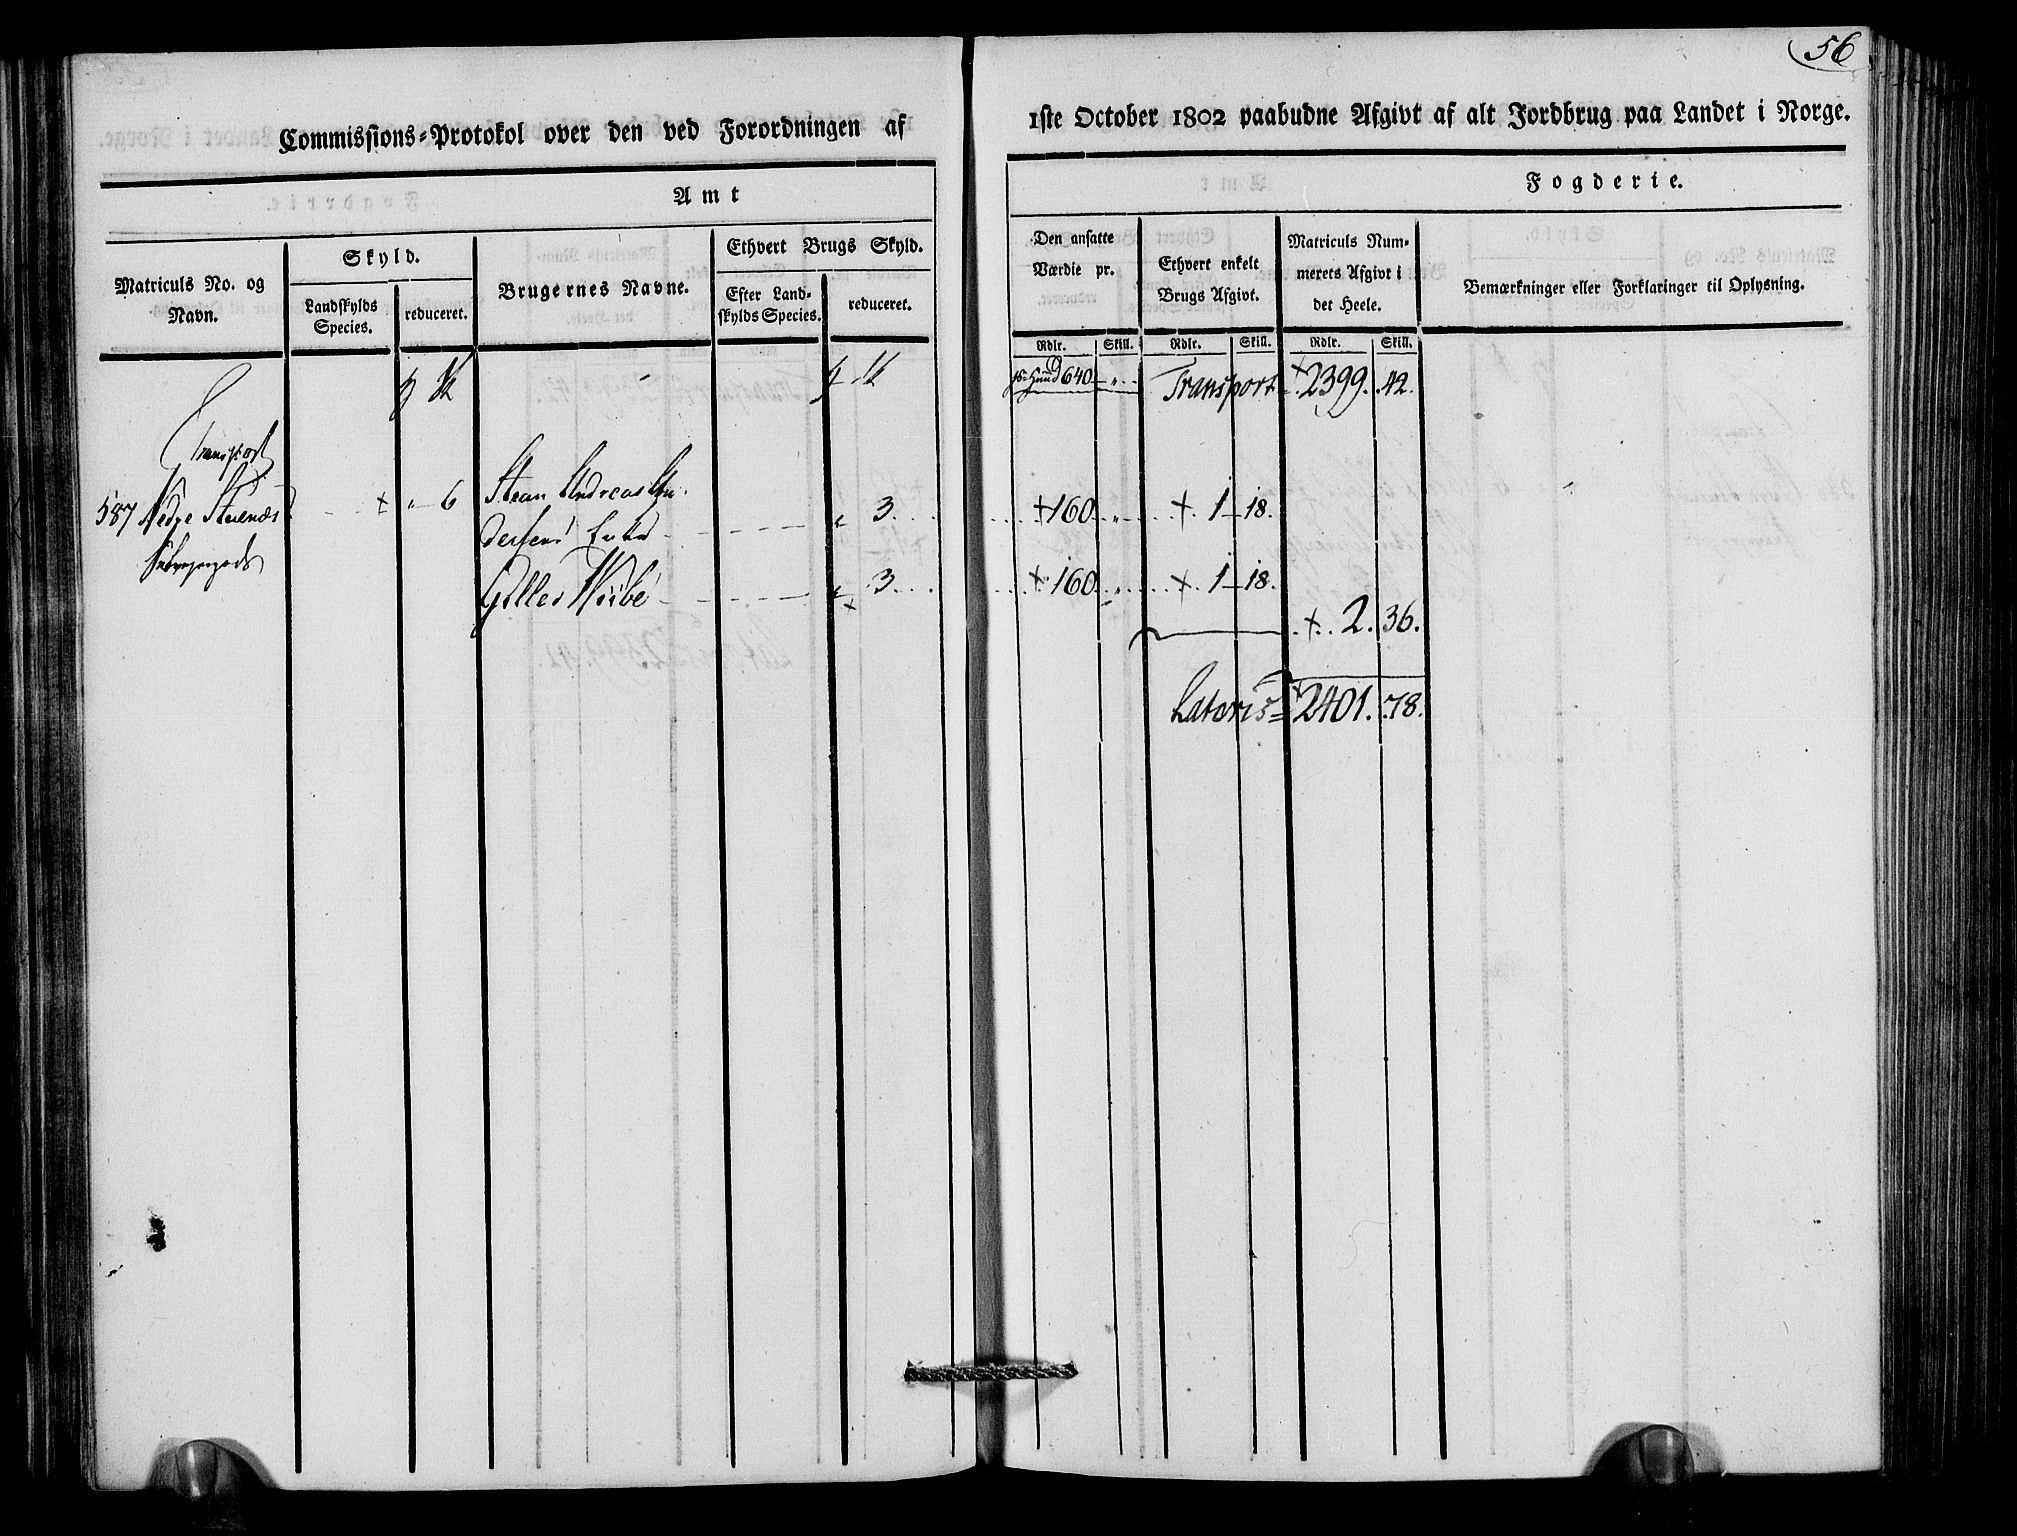 56
Commissions-Protokol over den ved Forordningen af
1ste October 1802 paabudne Afgivt af alt Jordbrug paa Landet i Norge.
Amt
Fogderie.
Matriculs No. og
Navn.
Skyld.
Landskylds
Species.
reduceret.
Brugernes Navne.
Ethvert Brugs Skyld.
Efter Land-
skylds Species.
reduceret.
Den ansatte
Værdie pr.
Ethvert enkelt
Brugs Afgivt.
Matriculs Num-
merets Afgivt i
det Heele.
Bemærkninger eller Forklaringer til Oplysning.
Rdlr. Skill. Rdlr. Skill. Rdlr. Skill.
Hud 640 Transport 2399. 42.
Transport
587 Nedre Stuenæs 6 3 160 1 18.
3 160 1 18.
2. 36.
Lateris 2401. 78.